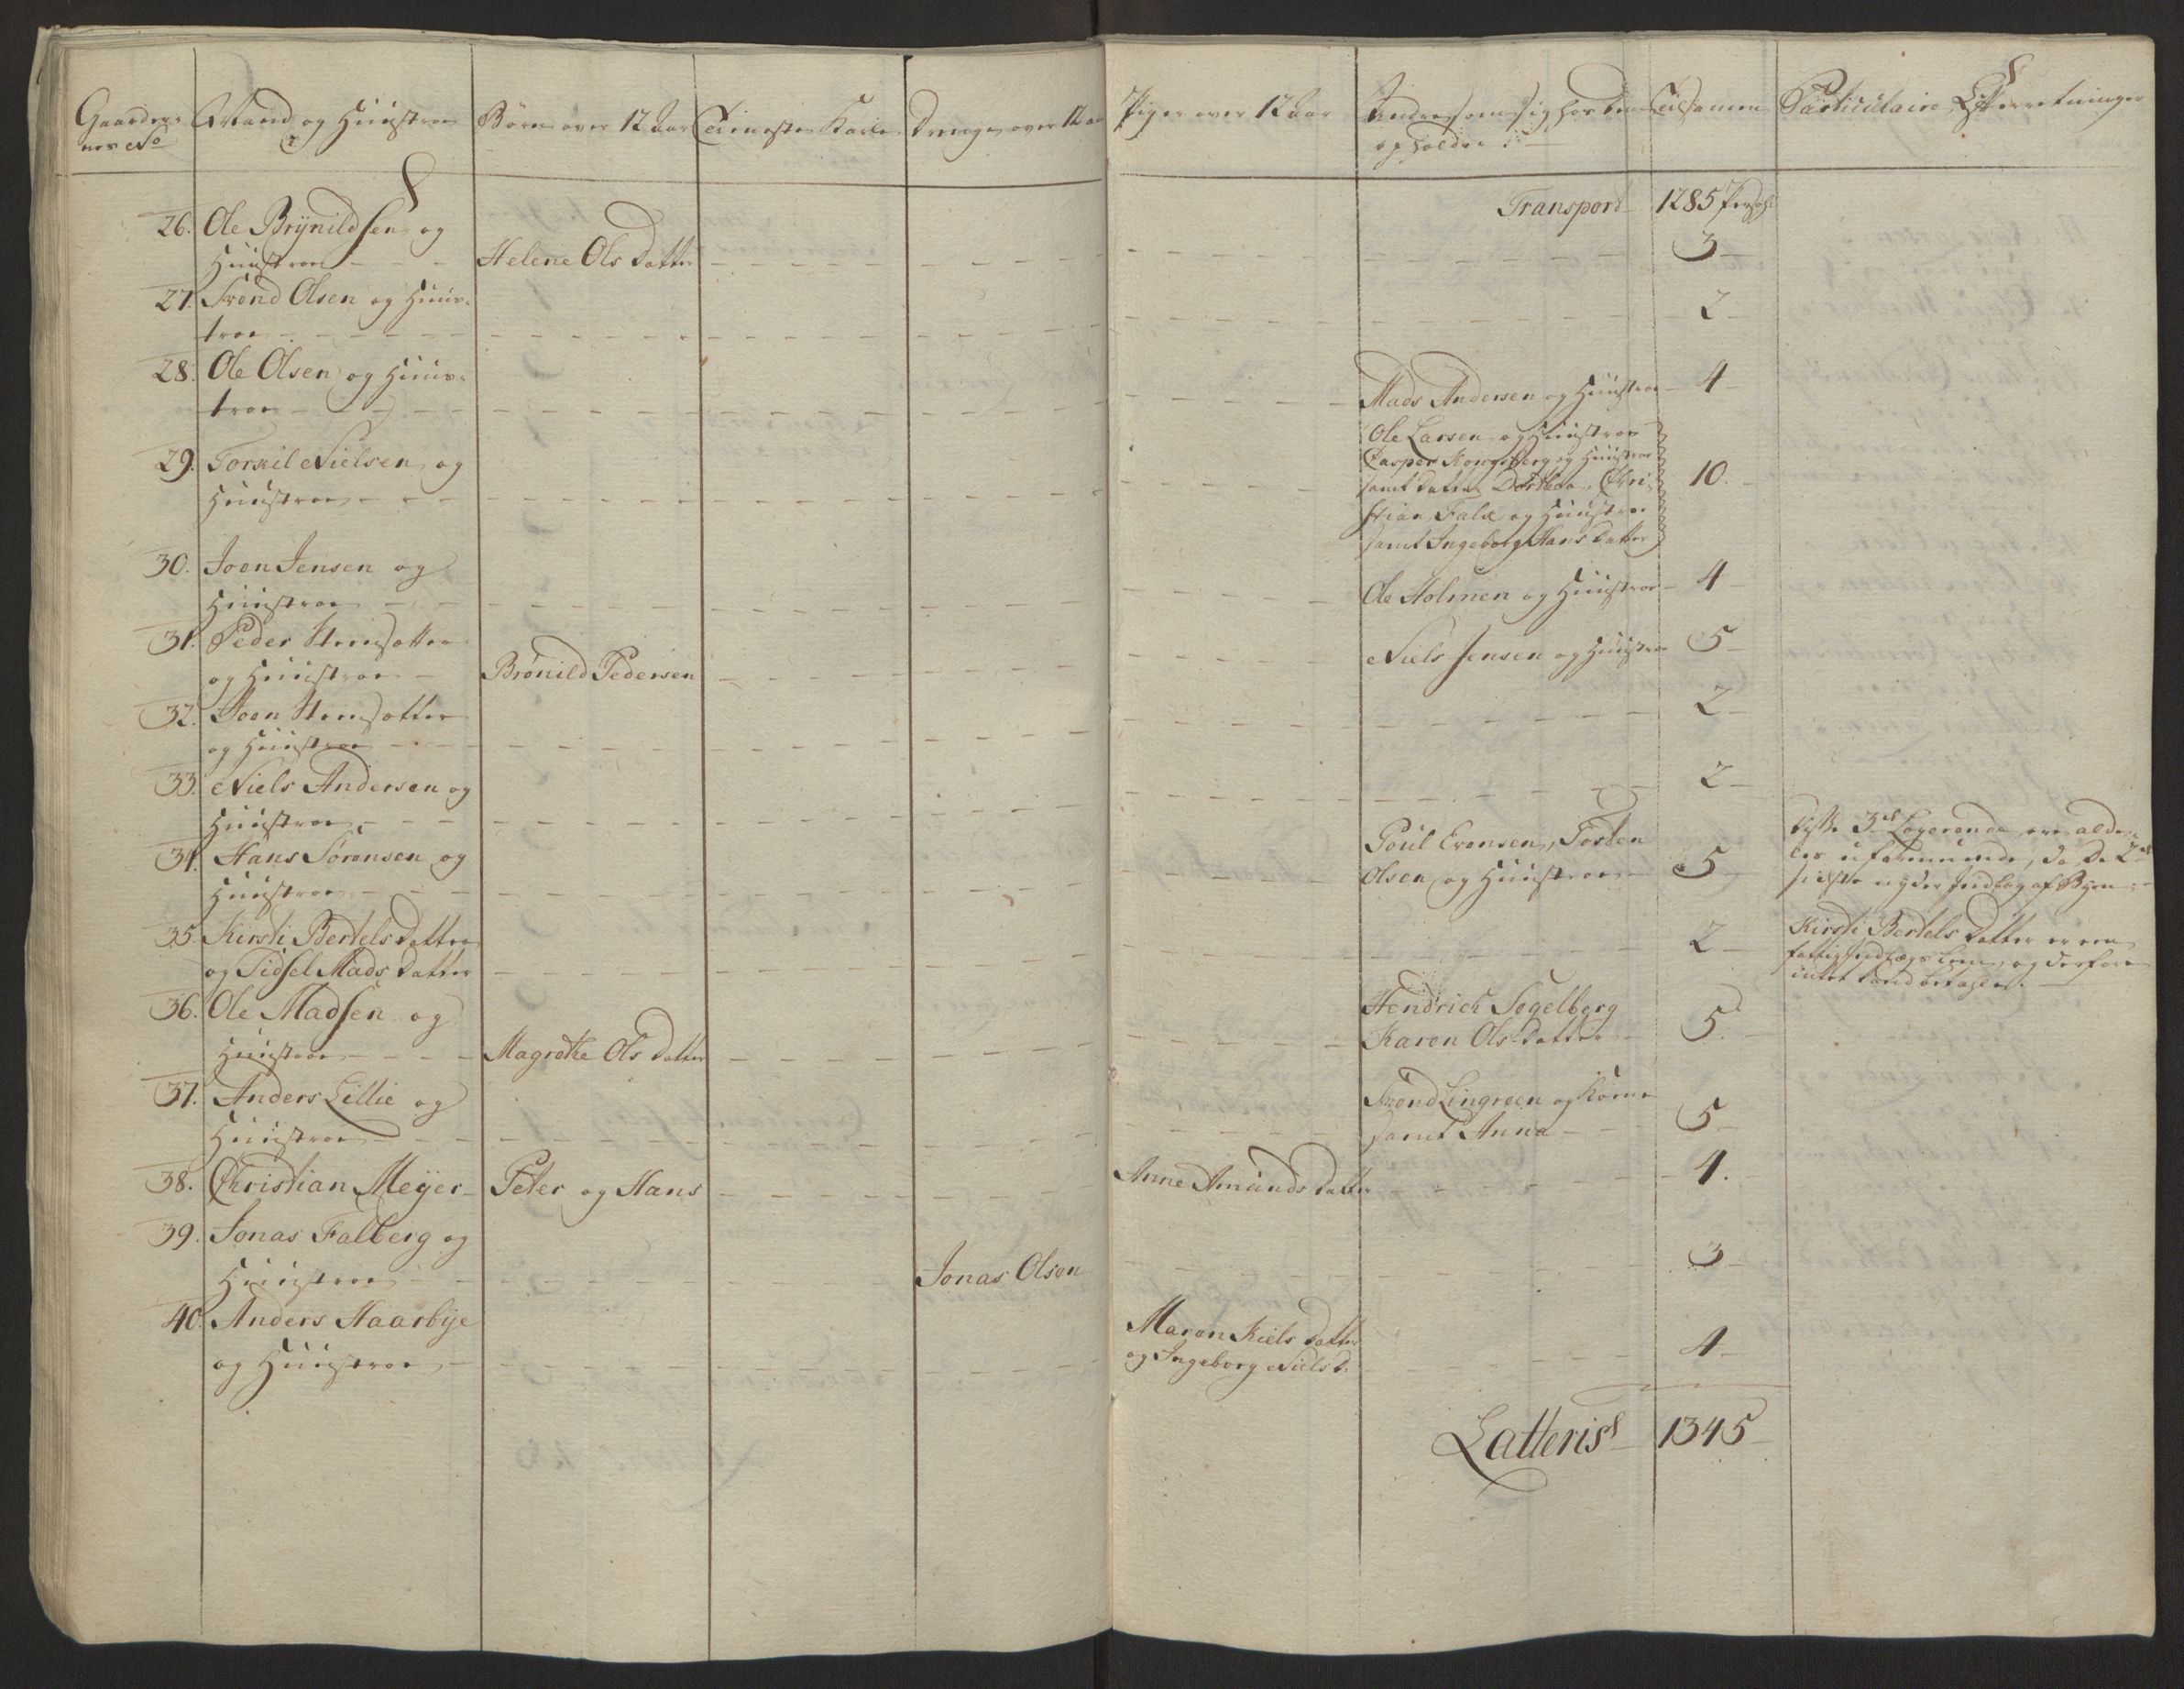 Gaarder- Mand og Huustroe Børn over 12 Aar Tieneste Karle Drenge over 12 aar Piger over 12 Aar Andre som sig hos dem Tilsamen Particulaire Efterretninger
nes No opholder
Transport 1285 Persoh:
26. Ole Brynildsen og
Huustroe - - - Helene Ols Datter 3
27. Trond Olsen og Huus-
troe 2
28. Ole Olsen og Huus-
troe Mads Andersen og Huustroe 4
29. Torkil Nielsen og
Huustroe
Ole Larsen og Huustroe
Casper Kongsberg og Huustroe
samt datter Dorthea, Chri- 10.
stian Falk og Huustroe
samt Ingeborg Hans datter
30. Joen Jensen og
Huustroe Ole Holmen og Huustroe 4
31. Peder
og Huustroe Brønild Pedersen Niels Jensen og Huustroe 5
32. Joen
og Huustroe 2
33. Niels Andersen og
Huustroe 2
34. Hans Sørensen og
Huustroe
Poul Evensen, Tosten
Olsen og Huustroe 5
disse 3de Logerende ere aldee-
les uformuende, da de 2de
sidste nyder Indlæg af Byen
35. Kirsti Bertels Datter
og Sidsel Mads Datter 2
Kirsti Bertels Datter er een
fattig Indlægs Lem, og derfore
intet kand betahle.
36. Ole Madsen og
Huustroe Magrethe Ols Datter
Hendrich Segelberg
Karen Ols Datter 5.
37. Anders Lillie og
Huustroe
Trond Lingreen og Kone
samt Anna 5
38. Christian Meyer Peter og Hans Anne Amunds datter 4.
39. Jonas Falberg og
Huustroe Jonas Olsen 3
40. Anders Haarbye
og Huustroe
Maren Kiels Datter
og Ingeborg Niels d. 4
Latteris 1345